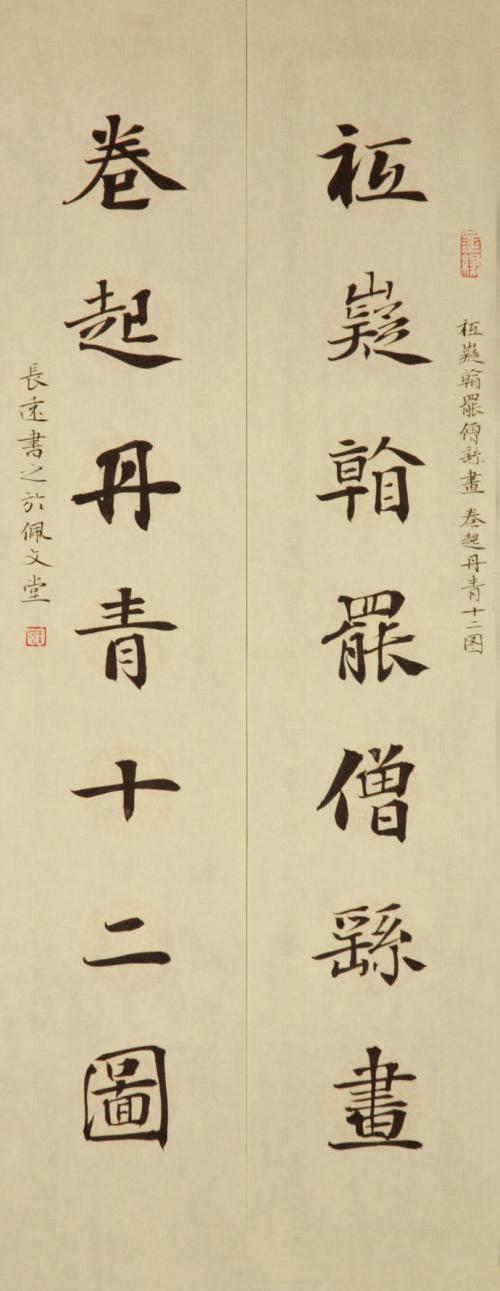 祗嶷翰罷僧繇畫 卷起丹青十二图
祗嶷翰罷僧繇畫
卷起丹青十二圖
長遠書之於佩文堂